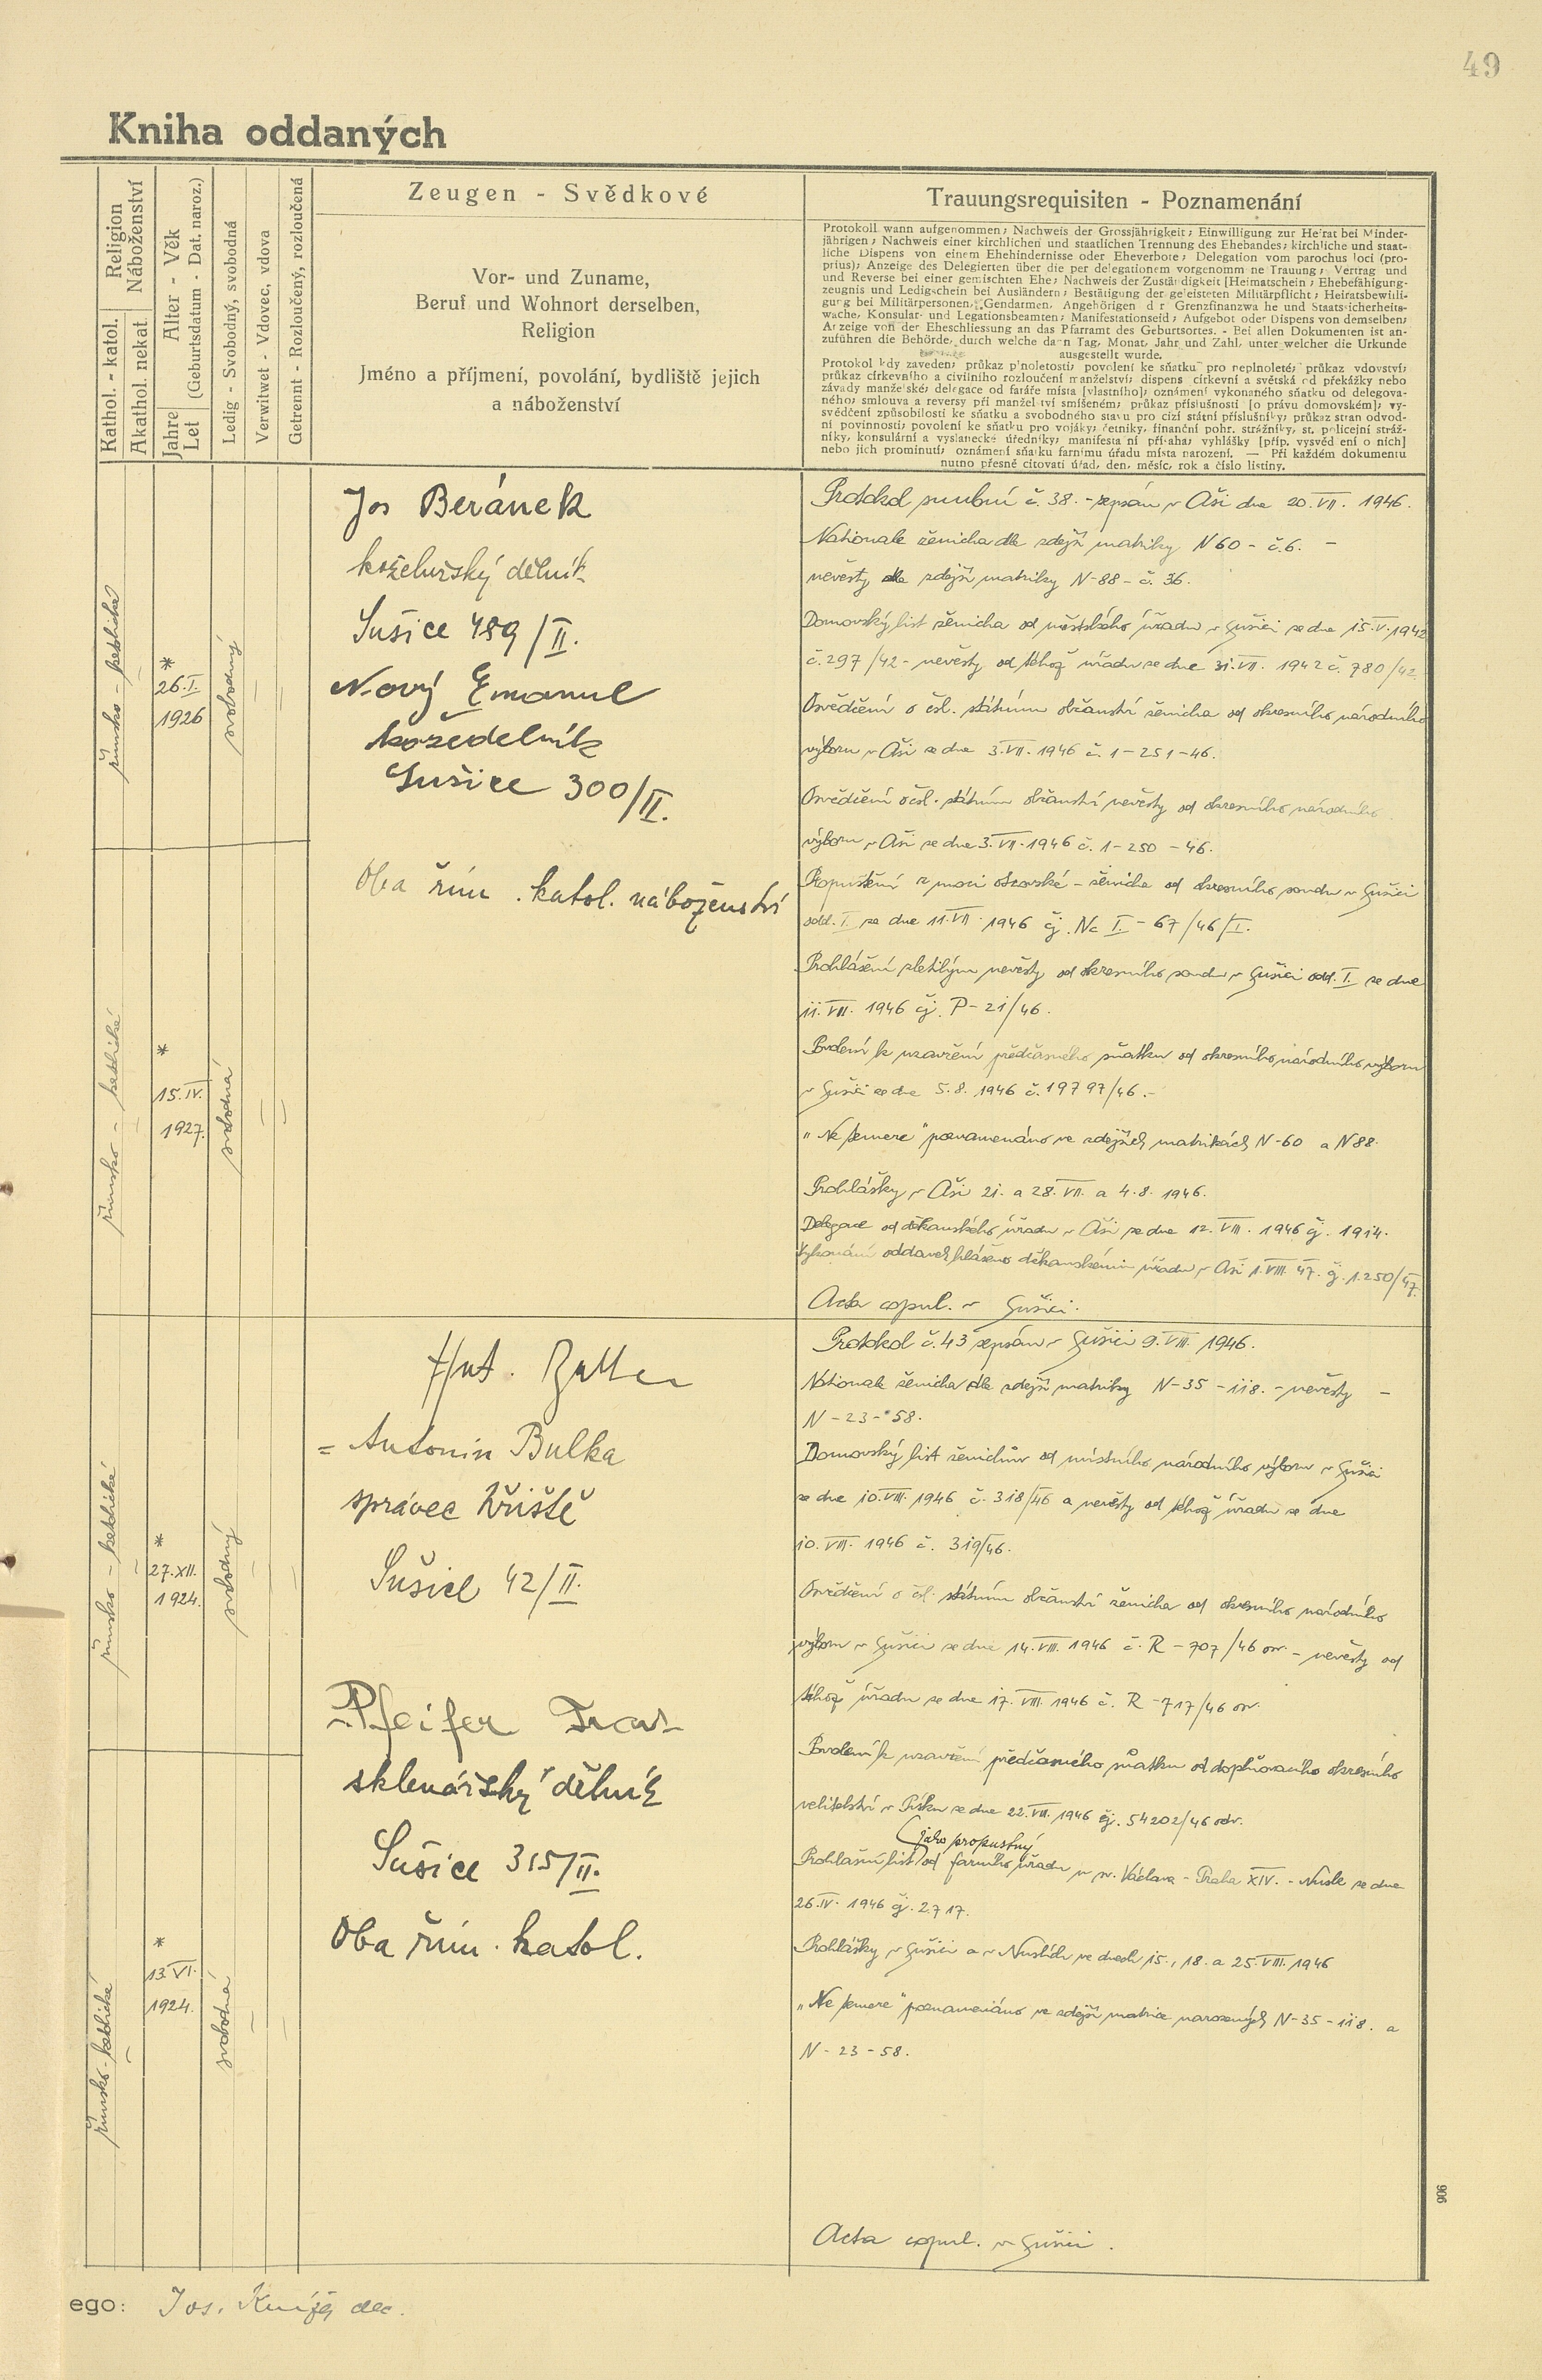 49
Kniha oddaných
Religion
Náboženství
Kathol. - katol.
Akathol. nekat.
Alter - Věk
(Geburtsdatum - Dat. naroz.)
Jahre
Let
Ledig - Svobodný, svobodná
Verwitwet - Vdovec, vdova
Getrennt - Rozloučený, rozloučená
Zeugen - Svědkové
Vor- und Zuname,
Beruf und Wohnort derselben,
Religion
Jméno a příjmení, povolání, bydliště jejich
a náboženství
Trauungsrequisiten - Poznamenání
Protokoll wann aufgenommen; Nachweis der Grossjährigkeit; Einwilligung zur Heirat bei Minder-
jährigen; Nachweis einer kirchlichen und staatlichen Trennung des Ehebandes; kirchliche und staat-
liche Dispens von einem Ehehindernisse oder Eheverbote; Delegation vom parochus loci (pro-
prius); Anzeige des Delegierten über die per delegationem vorgenomm ne Trauung; Vertrag und
und Reverse bei einer gemischten Ehe; Nachweis der Zuständigkeit [Heimatschein; Ehebefähigung-
zeugnis und Ledigschein bei Ausländern; Bestätigung der geleisteten Militärpflicht; Heiratsbewilli-
gung bei Militärpersonen, Gendarmen, Angehörigen d r Grenzfinanzwa he und Staatssicherheits-
wache, Konsular- und Legationsbeamten; Manifestationseid; Aufgebot oder Dispens von demselben;
Anzeige von der Eheschliessung an das Pfarramt des Geburtsortes. - Bei allen Dokumenten ist an-
zuführen die Behörde, durch welche dann Tag, Monat, Jahr und Zahl, unter welcher die Urkunde
ausgestellt wurde.
Protokol kdy zaveden; průkaz plnoletosti; povolení ke sňatku pro neplnoleté; průkaz vdovství;
průkaz církevního a civilního rozloučení manželství; dispens církevní a světská od překážky nebo
závady manželské; delegace od faráře místa [vlastního]; oznámení vykonaného sňatku od delegova-
ného; smlouva a reversy při manželství smíšeném; průkaz příslušnosti [o právu domovském]; vy-
svědčení způsobilosti ke sňatku a svobodného stavu pro cizí státní příslušníky; průkaz stran odvod-
ní povinnosti; povolení ke sňatku pro vojáky; četníky, finanční pohr. strážníky, st. policejní stráž-
níky, konsulární a vyslanecké úředníky; manifesta ní přísaha; vyhlášky [příp. vysvěd ení o nich]
nebo jich prominutí; oznámení sňatku farnímu úřadu místa narození. — Při každém dokumentu
nutno přesně citovati úřad, den, měsíc, rok a číslo listiny.
římsko - katolické
*
26.I.
1926
svobodný
Jos Beránek
koželužský dělník
Sušice 489/II.
Nový Emanuel
kožedělník
Sušice 300/II.
Oba řím. katol. náboženství
Protokol snubní č. 38. - sepsán v Aši dne 20. VII. 1946.
Nationale ženicha dle zdejší matriky N 60 - č. 6. -
nevěsty dle zdejší matriky N-88 - č. 36.
Domovský list ženicha od městského úřadu v Sušici ze dne 15.V.1942
č. 297/42 - nevěsty od téhož úřadu ze dne 31.VII. 1942 č. 780/42.
Osvědčení o čsl. státním občanství ženicha od okresního národního
výboru v Aši ze dne 3.VII. 1946 č. 1-251-46.
Osvědčení o čsl. státním občanství nevěsty od okresního národního
výboru v Aši ze dne 3.VII. 1946 č. 1-250-46.
Propuštění z moci otcovské - ženicha od okresního soudu v Sušici
odd. I. ze dne 11.VII. 1946 čj. Nc I. - 67/46/I.
Prohlášení zletilým nevěsty od okresního soudu v Sušici odd. I. ze dne
11.VII. 1946 čj. P-21/46.
Svolení k uzavření předčasného sňatku od okresního národního výboru
v Sušici ze dne 5.8. 1946 č. 19797/46.-
„Ne temere" poznamenáno ve zdejších matrikách N-60 a N88.
Prohlášky v Aši 21. a 28.VII. a 4.8. 1946.
Delegace od děkanského úřadu v Aši ze dne 12.VIII. 1946 čj. 1914.
Vykonání oddavek hlášeno děkanskému úřadu v Aši 1.VIII.47. čj. 1.250/47.
Acta copul. v Sušici.
římsko - katolické
*
15.IV.
1927.
svobodná
římsko - katolické
*
27.XII.
1924.
svobodný
= Antonín Bulka
správce hřiště
Sušice 42/II.
Pfeifer Fran
sklenářský dělník
Sušice 315/II.
Oba řím. katol.
Protokol č. 43 sepsán v Sušici 9.VIII. 1946.
Nationale ženicha dle zdejší matriky N-35-118. - nevěsty -
N-23-58.
Domovský list ženichův od místního národního výboru v Sušici
ze dne 10.VIII. 1946 č. 318/46 a nevěsty od téhož úřadu ze dne
10.VIII. 1946 č. 319/46.
Osvědčení o čsl. státním občanství ženicha od okresního národního
výboru v Sušici ze dne 14.VIII. 1946 č. R-707/46 - nevěsty od
téhož úřadu ze dne 17.VIII. 1946 č. R-717/46
Svolení k uzavření předčasného sňatku od doplňovacího okresního
velitelství v Písku ze dne 22.VII. 1946 čj. 54202/46 odv.
(jako propustný)
Prohlašní list od farního úřadu u sv. Václava - Praha XIV. - Nusle ze dne
26.IV. 1946 čj. 2717.
Prohlášky v Sušici a v Nuslích ve dnech 15., 18. a 25.VIII. 1946
„Ne temere" poznamenáno ve zdejší matrice narozených N-35-118. a
N-23-58.
Acta copul. v Sušici.
římsko-katolické
*
13.VI.
1924.
svobodná
906
ego: Jos. Kníže dec.